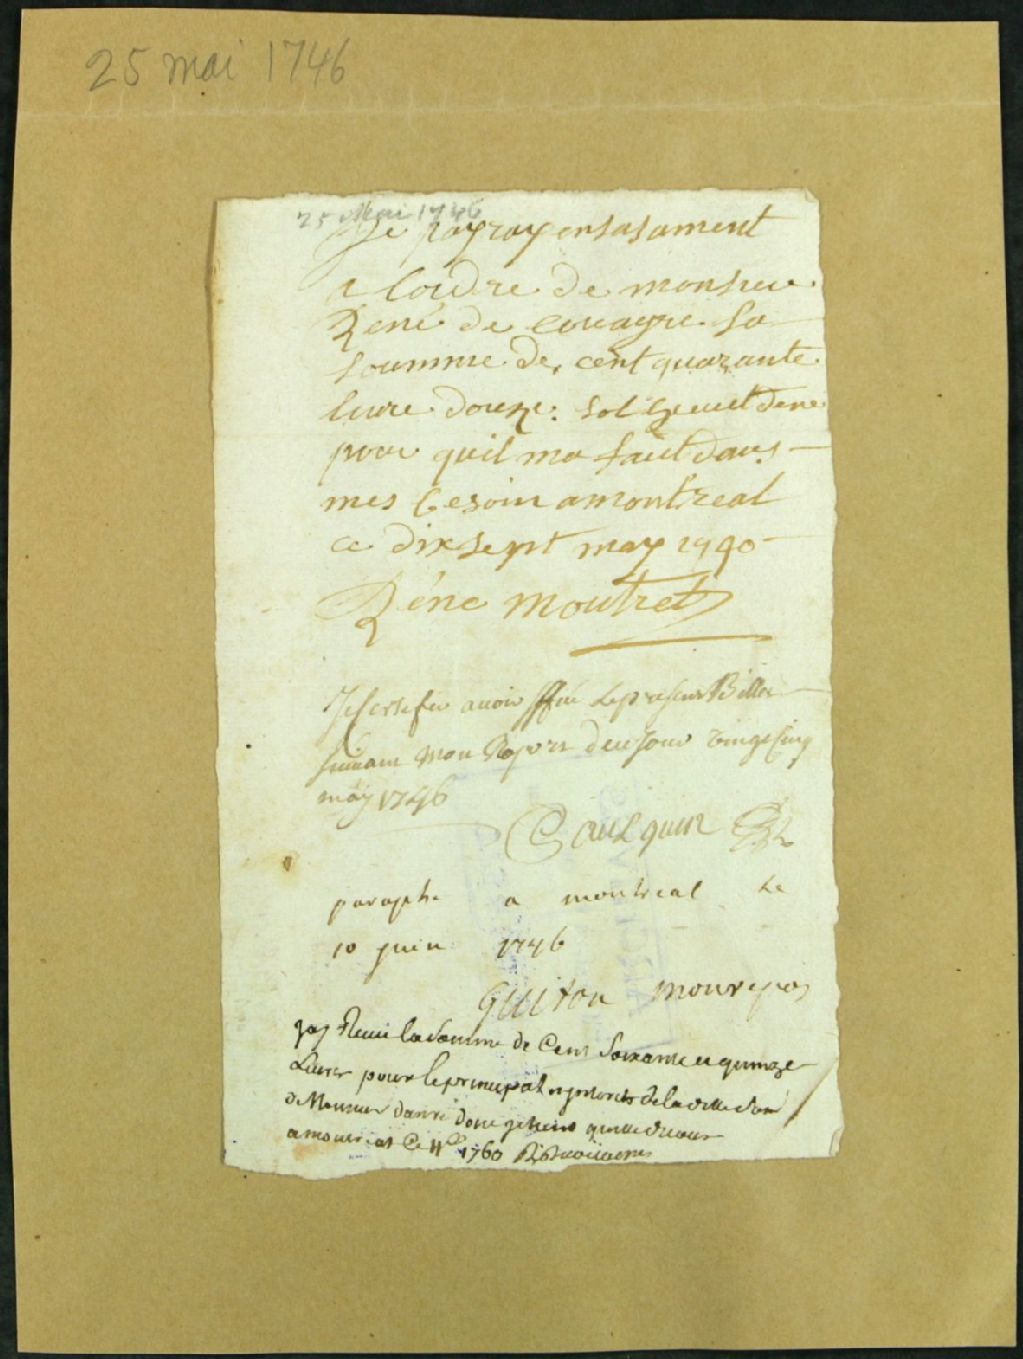 25 mai 1746
25 Mai 1746
Je payray ensasament
a lordre de monsieur
René de Couagne la
soumme de cent quarante
livre douze sol
pour quil ma fait dans
mes besoin a montreal
ce dix sept may 1740
Réne moutret
Je certifie avoir le present Billet
suivant mon Raport de ce jour vingt cinq
may 1746
paraphe a montreal le
10 juin 1746
Guiton monrepos
jay Receu la somme de Cent soixante et quinze
Livres pour le principal de la dette
de Monsieur
a moneral Ce 1760